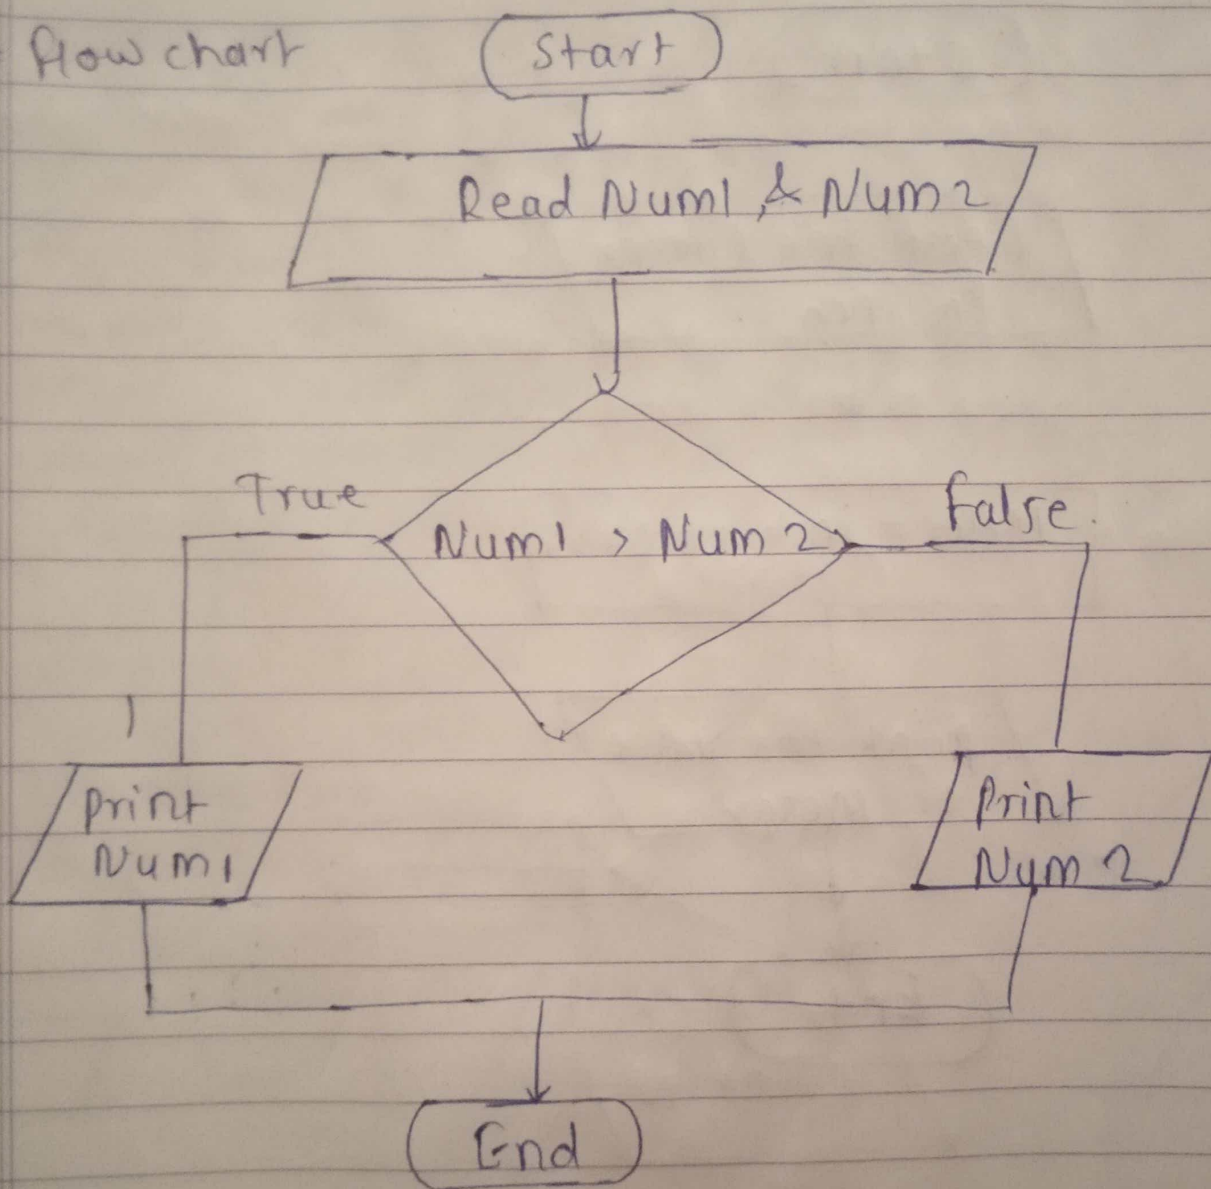 flow chart
Start
Read Num1, & Num2
True
False.
Num1 > Num2
Print
Num1
Print
Num2
End